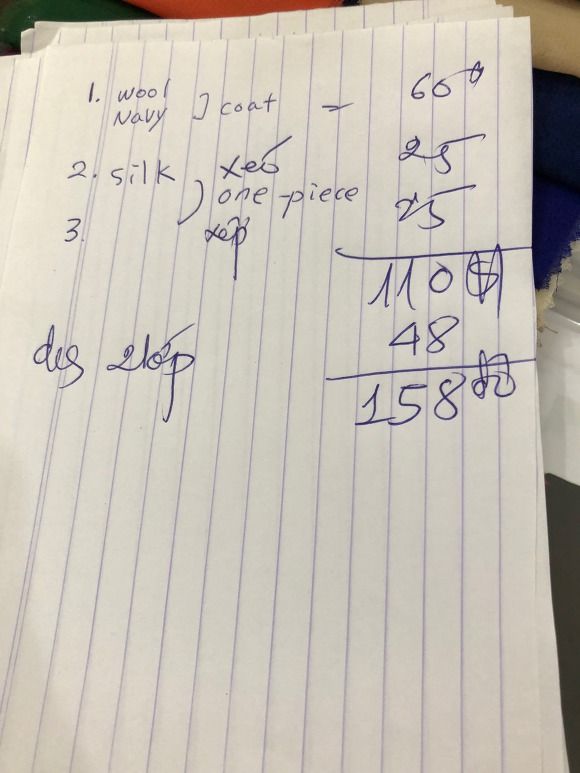 1. wool
Navy ] coat = 60
2. silk xẻ 25
) one-piece
3. 25
110 $
48
2 lớp
158 $